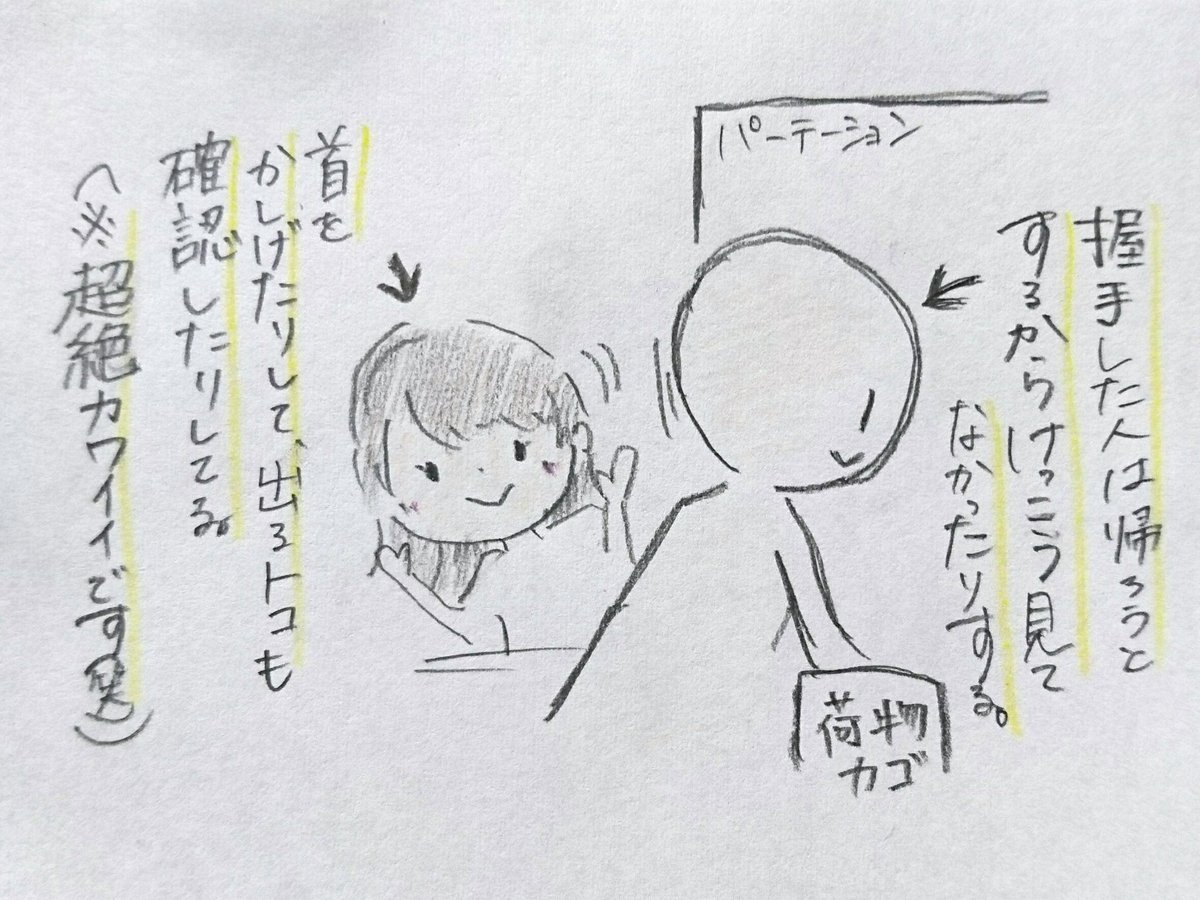 パーテーション
握手した人は帰ろうと
するからけっこう見て
なかったりする。
荷物
カゴ
首を
かしげたりして、出るトコも
確認したりしてる。
(※超絶カワイイです笑)